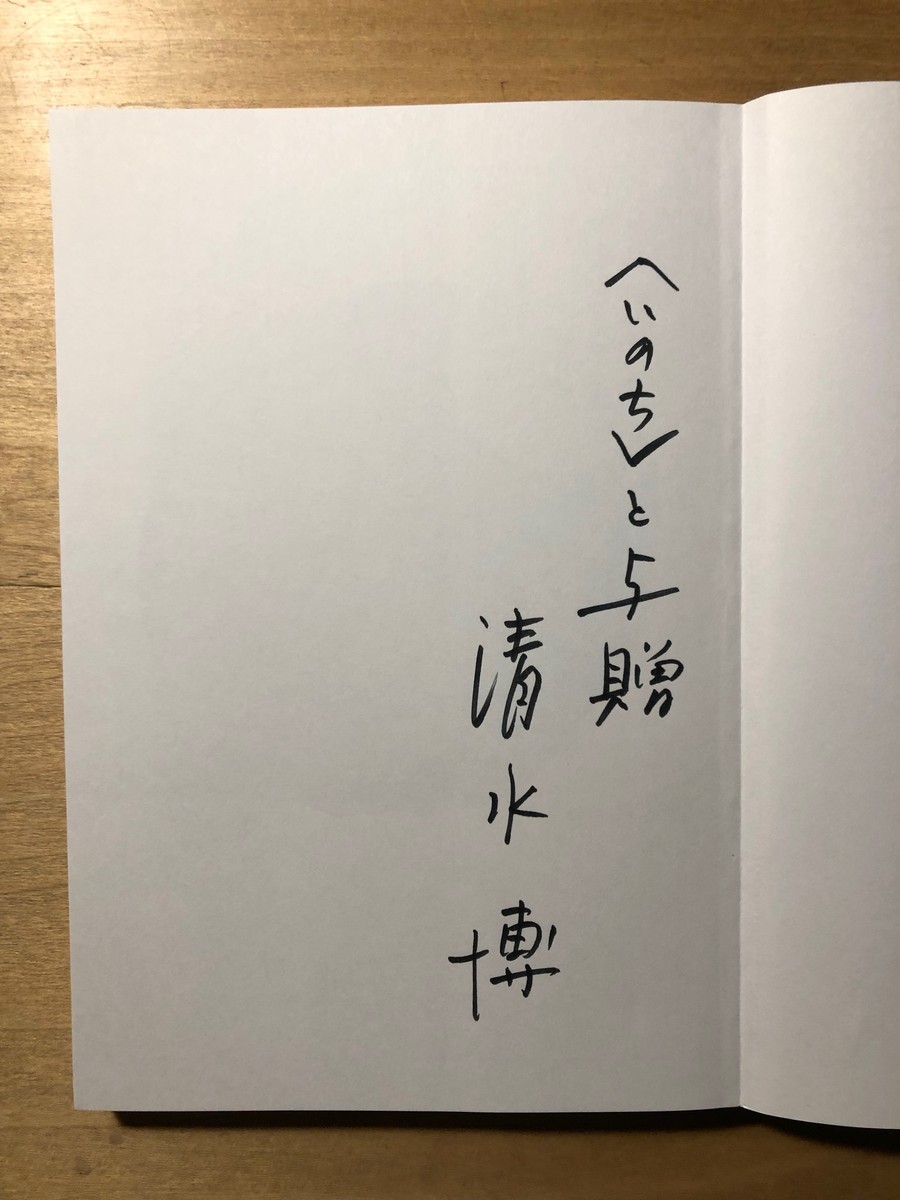 〈いのち〉と与贈
清水博